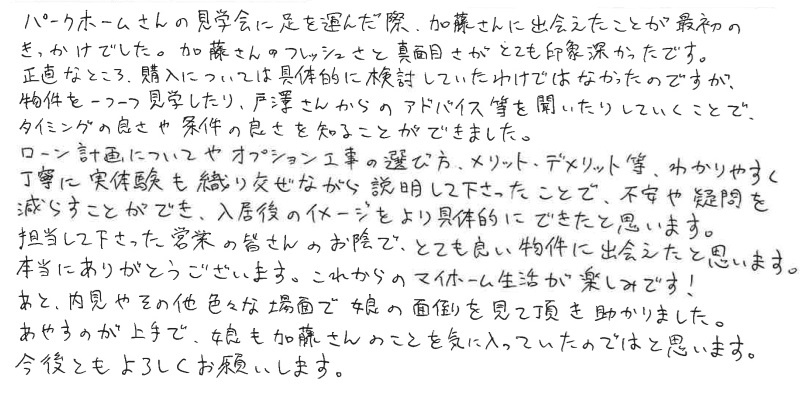 パークホームさんの見学会に足を運んだ際、加藤さんに出会えたことが最初の
きっかけでした。加藤さんのフレッシュさと真面目さがとても印象深かったです。
正直なところ、購入については具体的に検討していたわけではなかったのですが、
物件を一つ一つ見学したり、戸澤さんからのアドバイス等を聞いたりしていくことで、
タイミングの良さや条件の良さを知ることができました。
ローン計画についてやオプション工事の選び方、メリット、デメリット等、わかりやすく
丁寧に実体験も織り交ぜながら説明して下さったことで、不安や疑問を
減らすことができ、入居後のイメージをより具体的にできたと思います。
担当して下さった営業の皆さんのお陰で、とても良い物件に出会えたと思います。
本当にありがとうございます。これからのマイホーム生活が楽しみです!
あと、内見やその他色々な場面で娘の面倒を見て頂き助かりました。
あやすのが上手で、娘も加藤さんのことを気に入っていたのではと思います。
今後ともよろしくお願いします。